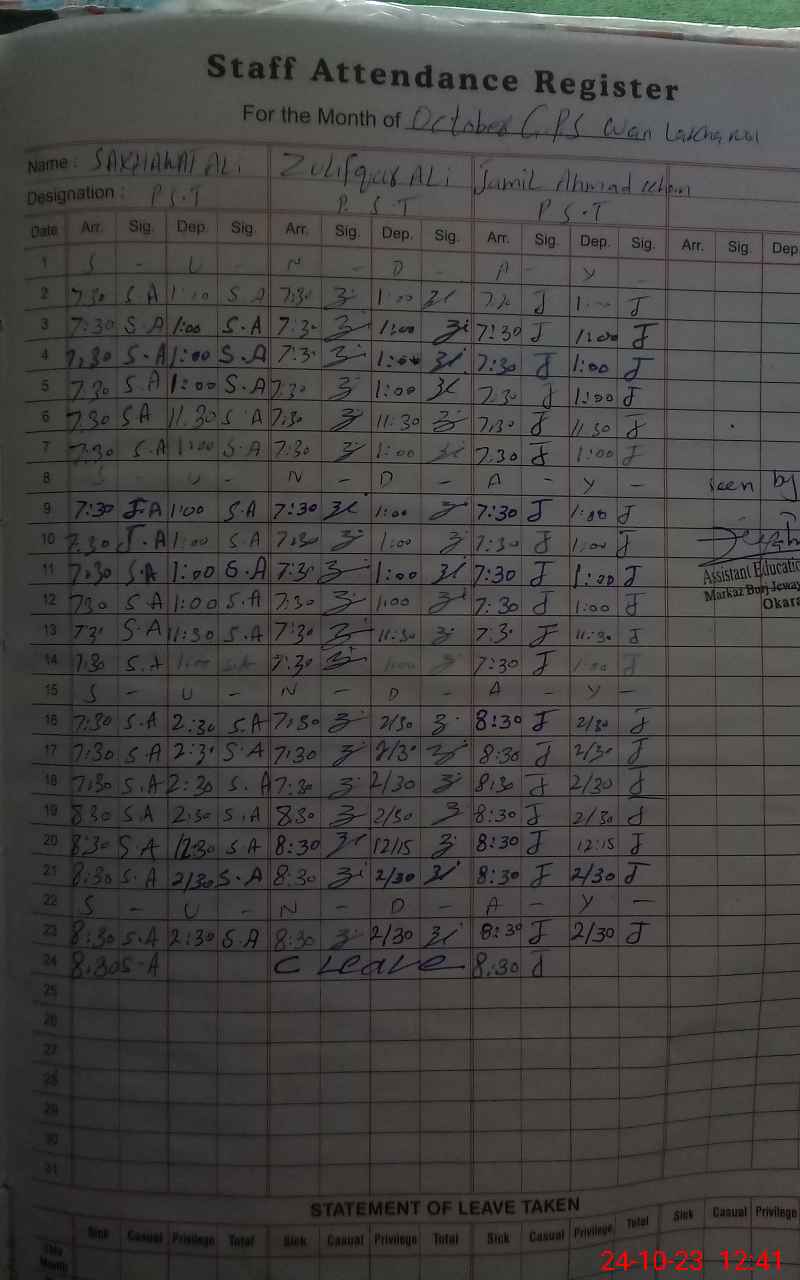 Staff Attendance Register
For the Month of October G.P.S Wan
Name : SAKHAWAT ALi Zulifqar ALi Jamil Ahmad
Designation : P S.T P. S T P S.T
Date Arr. Sig. Dep. Sig. Arr. Sig. Dep. Sig. Arr. Sig. Dep. Sig. Arr. Sig. Dep
1 S - U - N - D - A - Y -
2 7:30 S.A 1:00 S.A 7:30 1:00 J 1:00 J
3 7:30 S.A 1:00 S.A 7:30 1:00 7:30 J 1:00 J
4 7:30 S.A 1:00 S.A 7:30 1:00 7:30 J 1:00 J
5 7:30 S.A 1:00 S.A 7:30 1:00 7:30 J 1:00 J
6 7:30 S A 11:30 S.A 7:30 11:30 7:30 J 11:30 J
7 7:30 S.A 1:00 S.A 7:30 1:00 7:30 J 1:00 J
8 S - U - N - D - A - Y - Seen by
9 7:30 S.A 1:00 S.A 7:30 1:00 7:30 J 1:00 J
10 7:30 S.A 1:00 S.A 7:30 1:00 7:30 J 1:00 J
11 7:30 S.A 1:00 S.A 7:30 1:00 7:30 J 1:00 J Assistant Educatio
12 7:30 S.A 1:00 S.A 7:30 1:00 7:30 J 1:00 J Markaz Burj Jeway
Okara
13 7:30 S.A 11:30 S.A 7:30 11:30 7:30 J 11:30 J
14 7:30 S.A 1:00 S.A 7:30 1:00 7:30 J 1:00 J
15 S - U - N - D - A - Y -
16 7:30 S.A 2:30 S.A 7:30 2/30 8:30 J 2/30 J
17 7:30 S.A 2:30 S.A 7:30 2/30 8:30 J 2/30 J
18 7:30 S.A 2:30 S.A 7:30 2/30 8:30 J 2/30 J
19 8:30 S.A 2:30 S.A 8:30 2/30 8:30 J 2/30 J
20 8:30 S.A 12:30 S.A 8:30 12/15 8:30 J 12:15 J
21 8:30 S.A 2/30 S.A 8:30 2/30 8:30 J 2/30 J
22 S - U - N - D - A - Y -
23 8:30 S.A 2:30 S.A 8:30 2/30 8:30 J 2/30 J
24 8:30 S.A C Leave 8:30 J
25
26
27
28
29
30
31
STATEMENT OF LEAVE TAKEN
Sink Casual Privilege Total Sink Casual Privilege Total Sink Casual Privilege Total Sink Casual Privilege
This Month
24-10-23 12:41